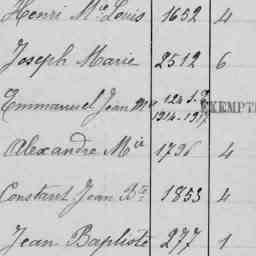 Henri Mie Louis 1652 4
Joseph Marie 2512 6
Emmanuel Jean Mie 1914-1917 EXEMPT
Alexandre Mie 1796 4
Constant Jean Bte 1853 4
Jean Baptiste 277 1